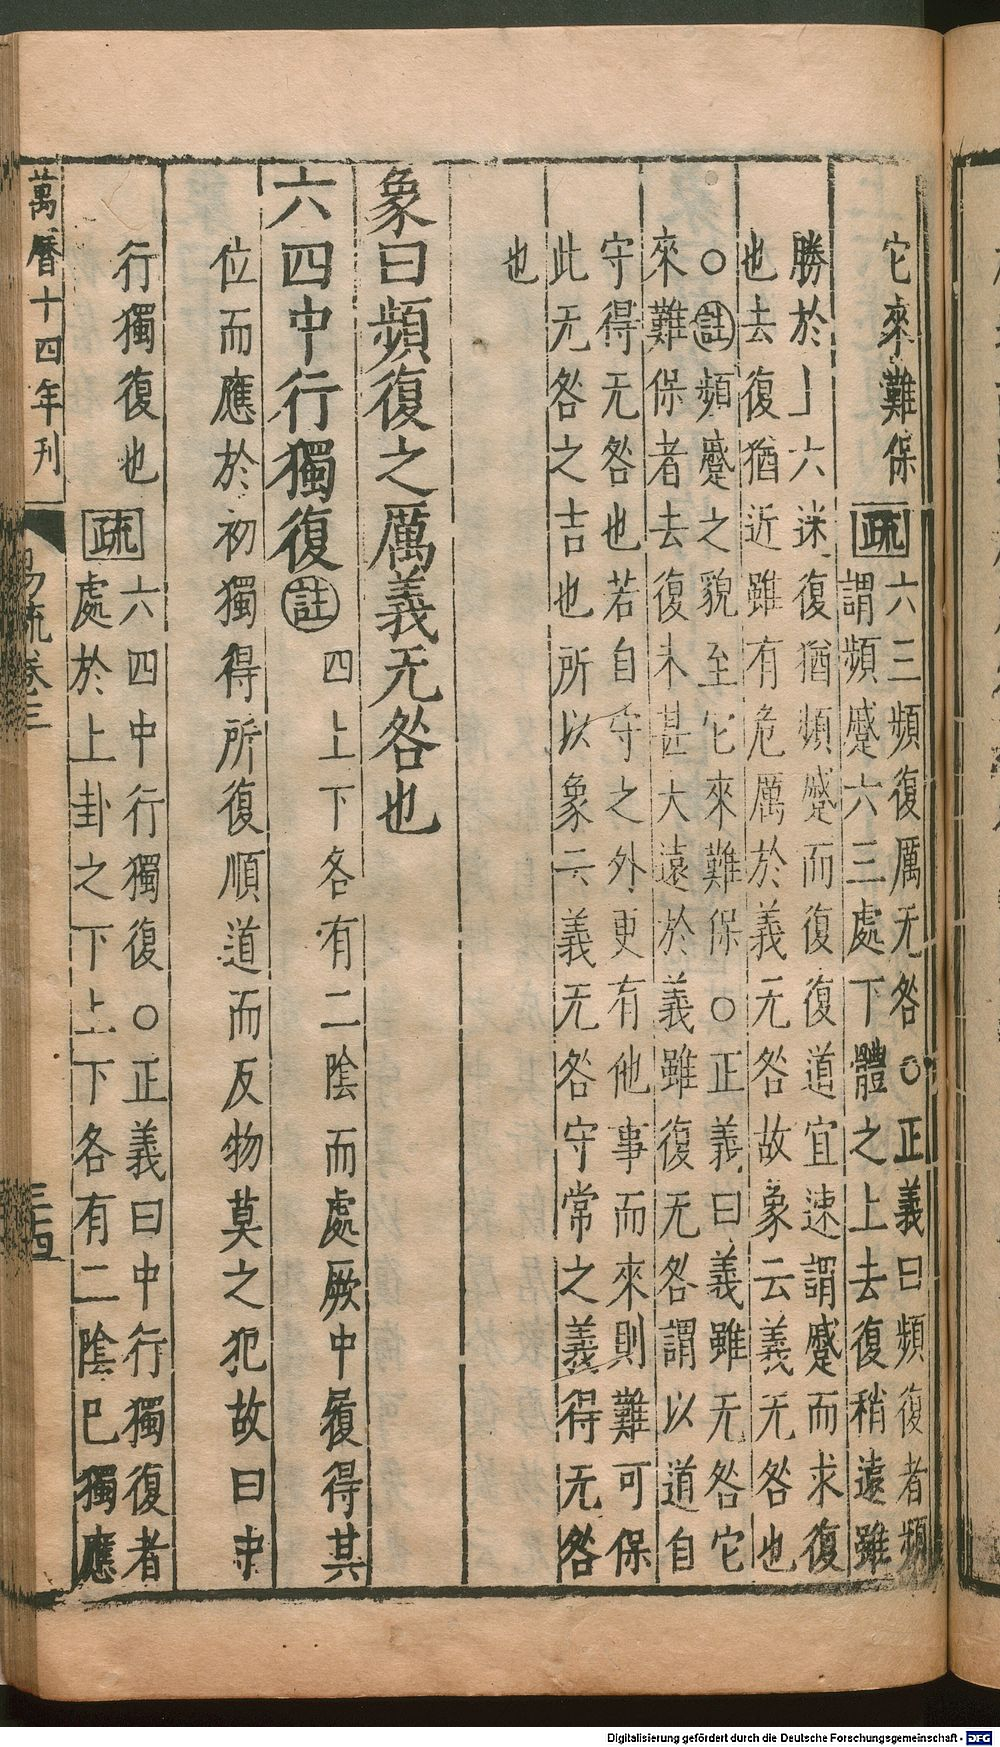 它來難保疏六三頻復厲无咎○正義曰頻復者頻
謂頻蹙六三處下體之上去復稍遠雖
勝於六迷復猶頻蹙而復復道宜速謂蹙而求復
也去復猶近雖有危厲於義无咎故象云義无咎也
○註頻蹙之貌至它來難保○正義曰義雖无咎它
來難保者去復未甚大遠於義雖復无咎謂以道自
守得无咎也若自守之外更有他事而來則難可保
此无咎之吉也所以象云義无咎守常之義得无咎
也
象曰頻復之厲義无咎也
六四中行獨復註四上下各有二陰而處厥中履得其
位而應於初獨得所復順道而反物莫之犯故曰中
行獨復也疏六四中行獨復○正義曰中行獨復者
處於上卦之下上下各有二陰巳獨應
萬曆十四年刊
易疏卷三
三十四
Digitalisierung gefördert durch die Deutsche Forschungsgemeinschaft - DFG